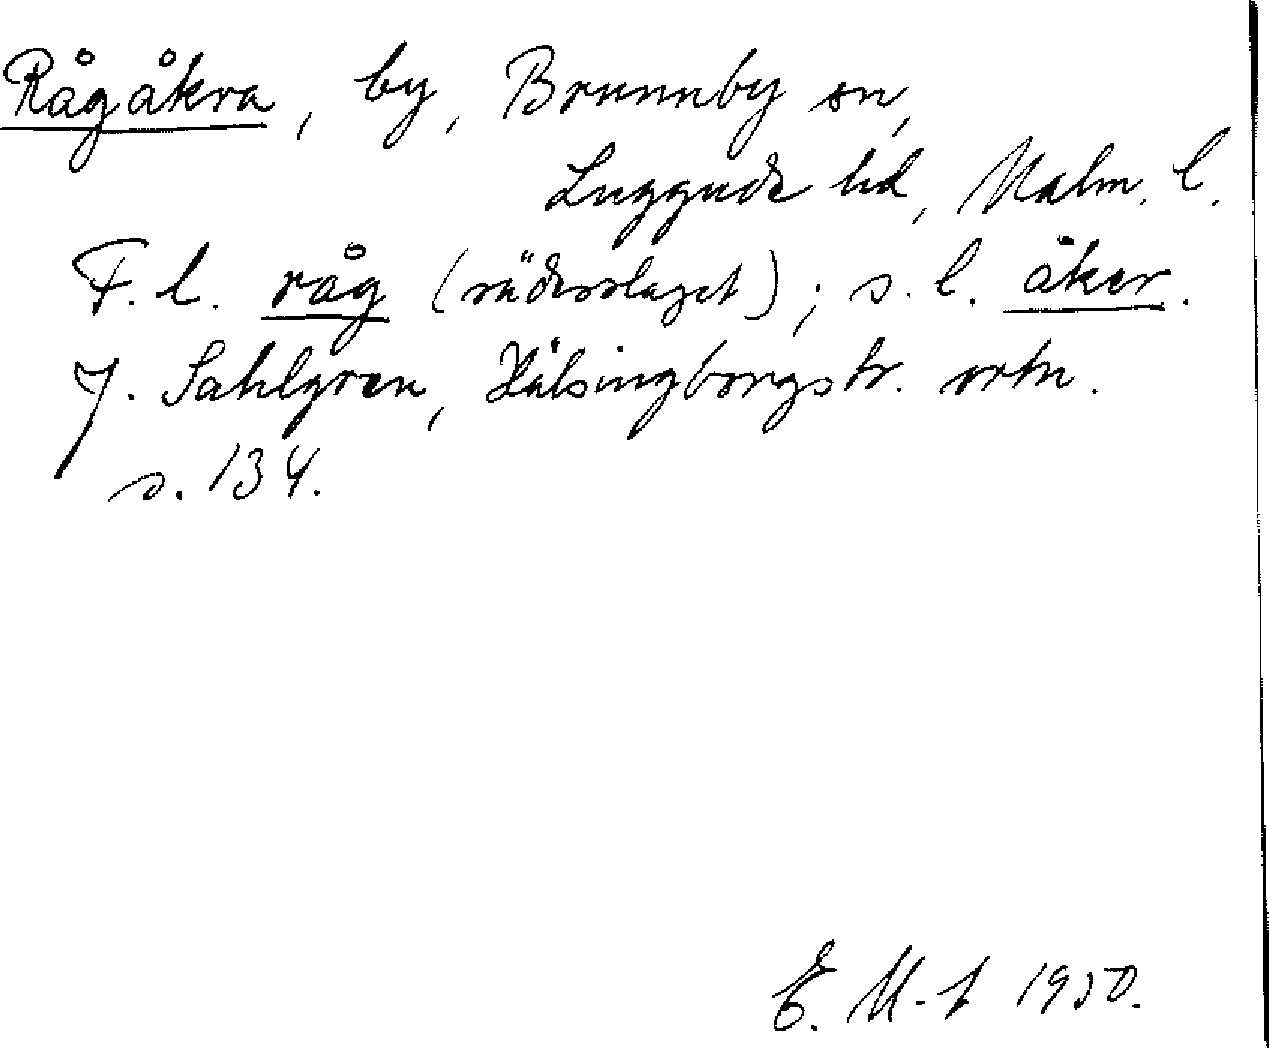 Rågåkra, by, Brunnby sn,
Luggude hd, Malm. l.
F. l. råg (sädesslaget); s. l. åker.
J. Sahlgren, Hälsingborgstr. ortn.
s. 134.
E. M-t 1950.